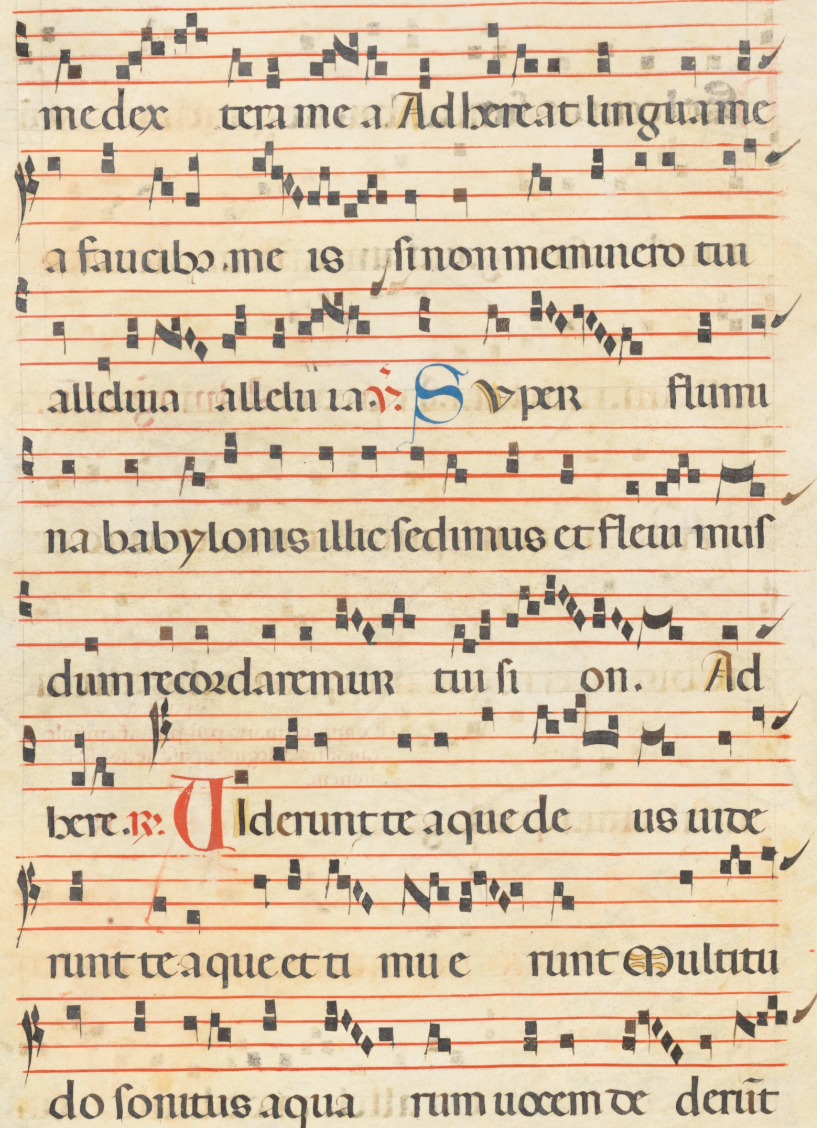 me dex tera me a Adhereat lingua me
a faucibꝫ me is si non meminero tui
alleluia allelu ia. ℣. SVper flumi
na babylonis illic sedimus et fleui mus
dum recordaremur tui si on. Ad
here. ℟. VIderunt te aque de us uide
runt te aque et ti mu e runt Multitu
do sonitus aqua rum uocem de derūt